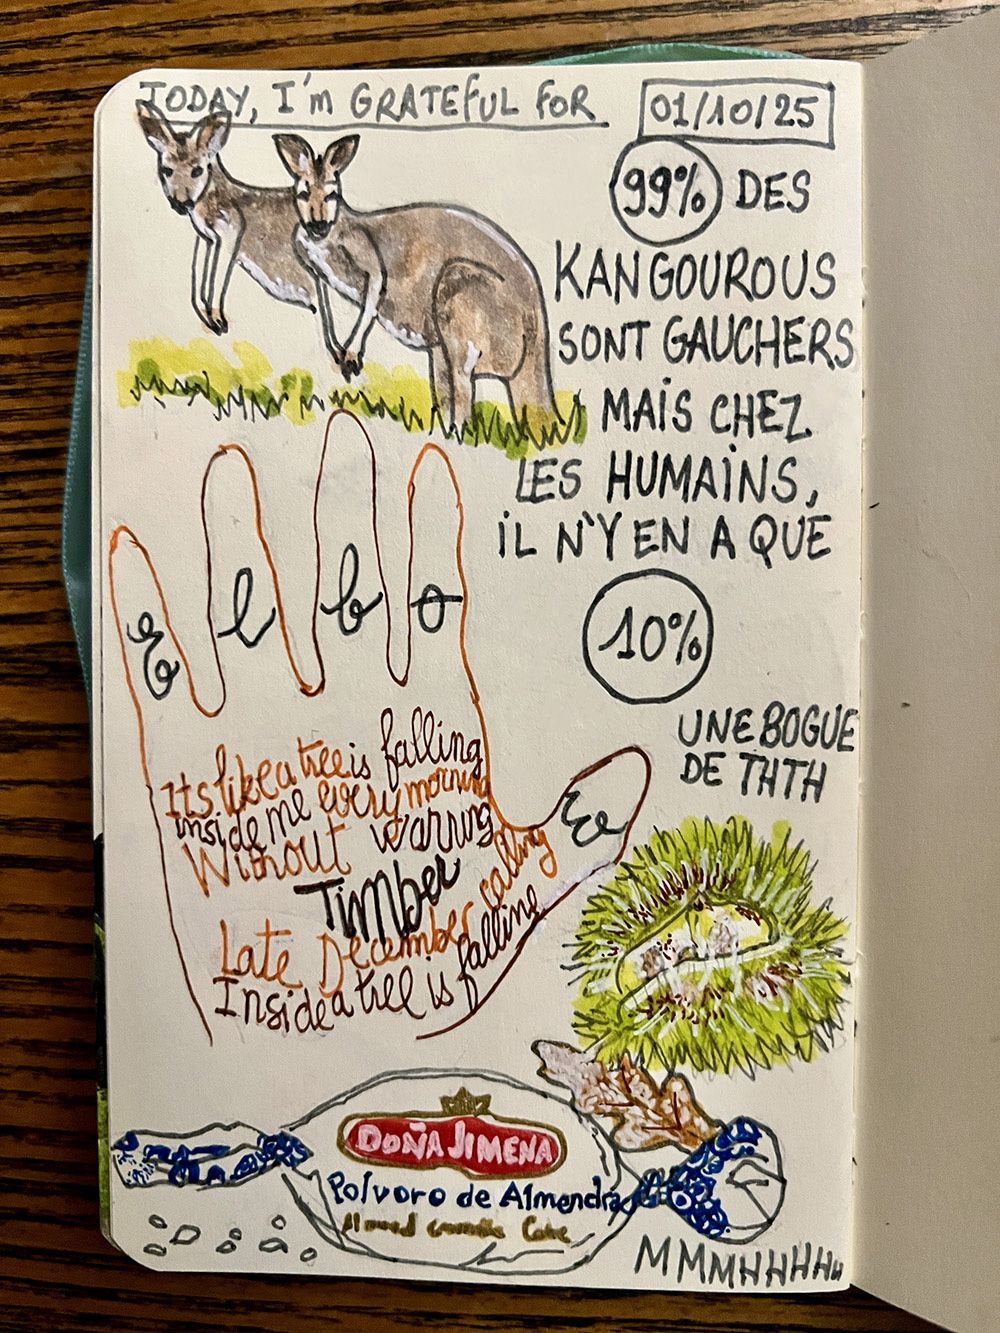 TODAY, I'm GRATEFUL FOR
01/10/25
99% DES
KANGOUROUS
SONT GAUCHERS
MAIS CHEZ
LES HUMAINS,
iL N'Y EN A QUE
10%
Elbo
Its like a tree is falling
inside me every morning
Without warning
Timber
Late December calling
Inside a tree is falline
UNE BOGUE
DE THTH
DOÑA JIMENA
Polvoro de Almendra
Cake
MMMHHHHH